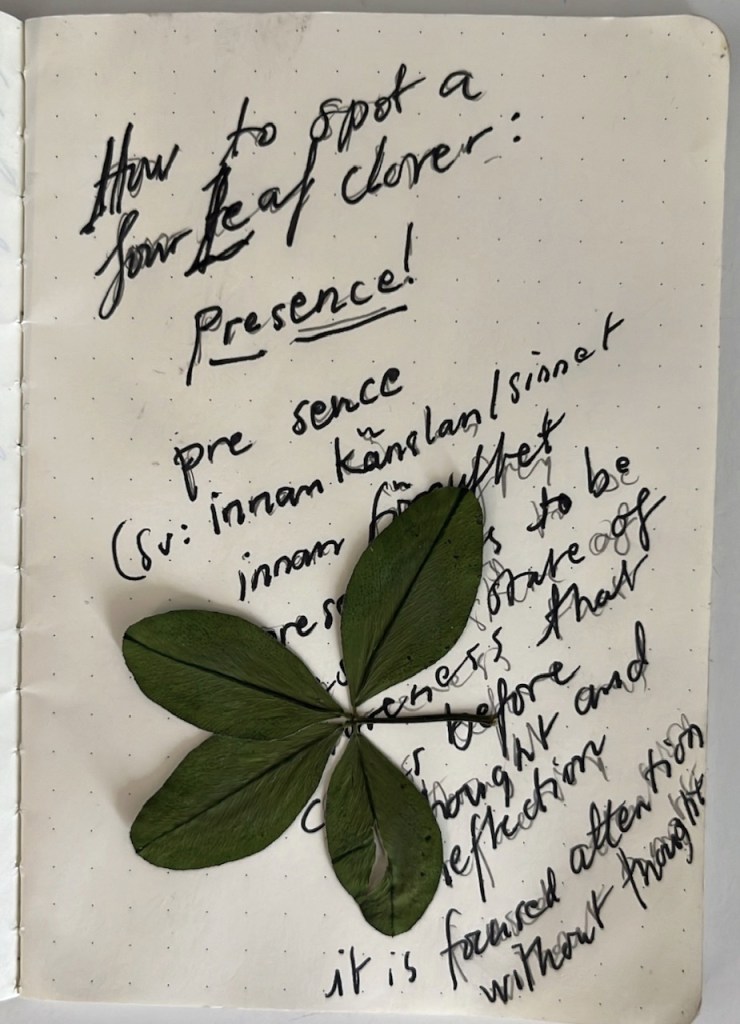 How to spot a
four Leaf clover:
Presence!
pre sence
(sv: innan känslan/sinnet
innan
to be
state of
that
before
and
reflection
it is focused attention
without thought